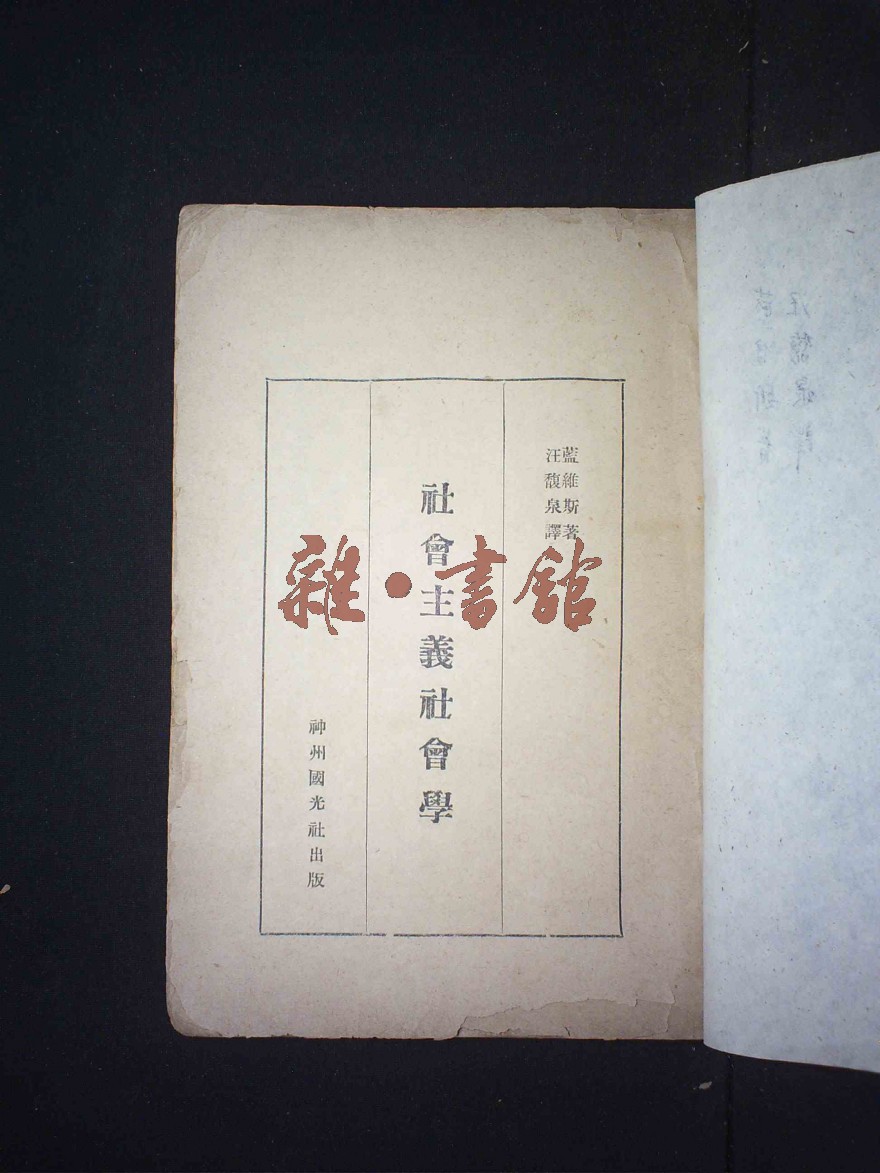 藍維斯著
汪馥泉譯
社會主義社會學
神州國光社出版
雜·書館